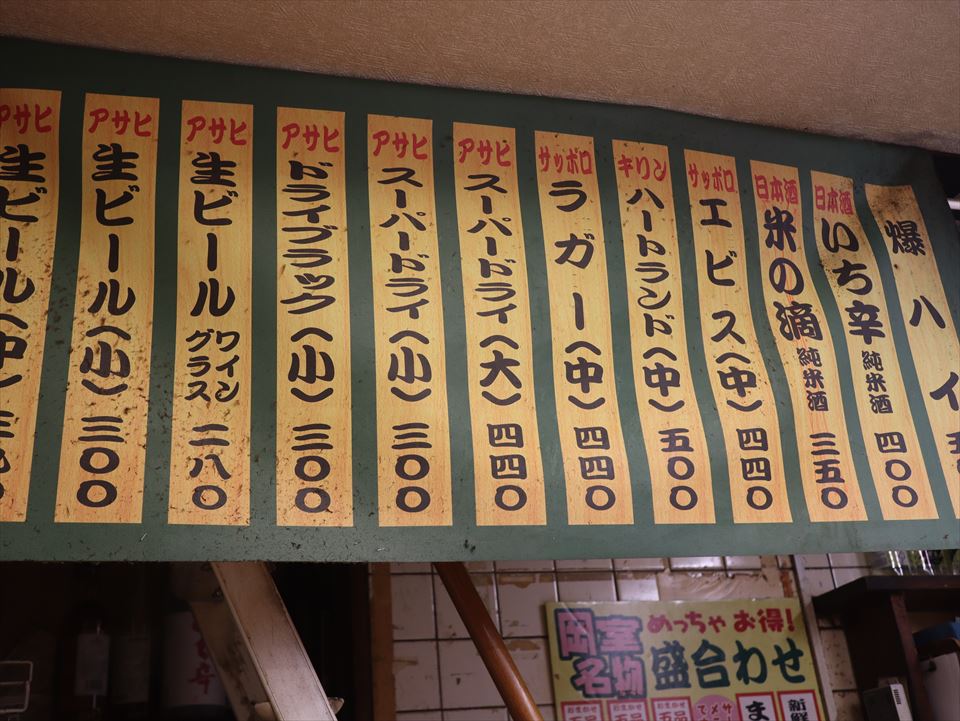 アサヒ 生ビール(中)
アサヒ 生ビール(小) 三〇〇
アサヒ 生ビール ワイングラス 二八〇
アサヒ ドライブラック(小) 三〇〇
アサヒ スーパードライ(小) 三〇〇
アサヒ スーパードライ(大) 四四〇
サッポロ ラガー(中) 四四〇
キリン ハートランド(中) 五〇〇
サッポロ エビス(中) 四四〇
日本酒 米の滴 純米酒 三五〇
日本酒 いち辛 純米酒 四〇〇
爆ハイ
岡室名物
めっちゃお得!
盛合わせ